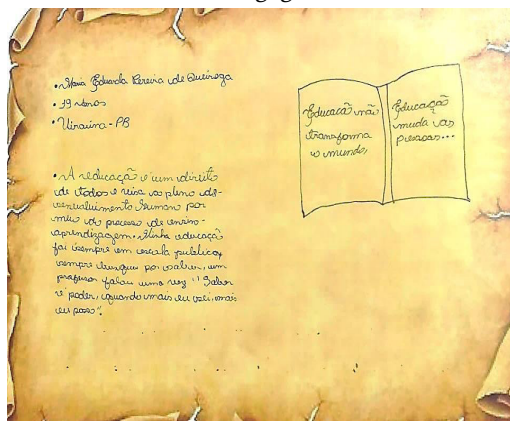 • Maria Eduarda Pereira de Queiroga
• 19 anos
• Uiraúna-PB
• A educação é um direito
de todos e visa ao pleno de-
senvolvimento humano por
meio do processo de ensino-
aprendizagem. Minha educação
foi sempre em escola pública,
sempre busquei por saber, um
professor falou uma vez "Saber
é poder, quando mais eu sei, mais
eu posso".
Educação não
transforma
o mundo,
Educação
muda as
pessoas...